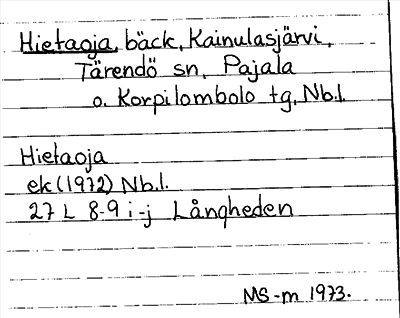 Hietaoja, bäck, Kainulasjärvi,
Tärendö sn, Pajala
o. Korpilombolo tg, Nb.l.
Hietaoja
ek (1972) Nb.l.
27 L 8-9 i-j Långheden
MS-m 1973.